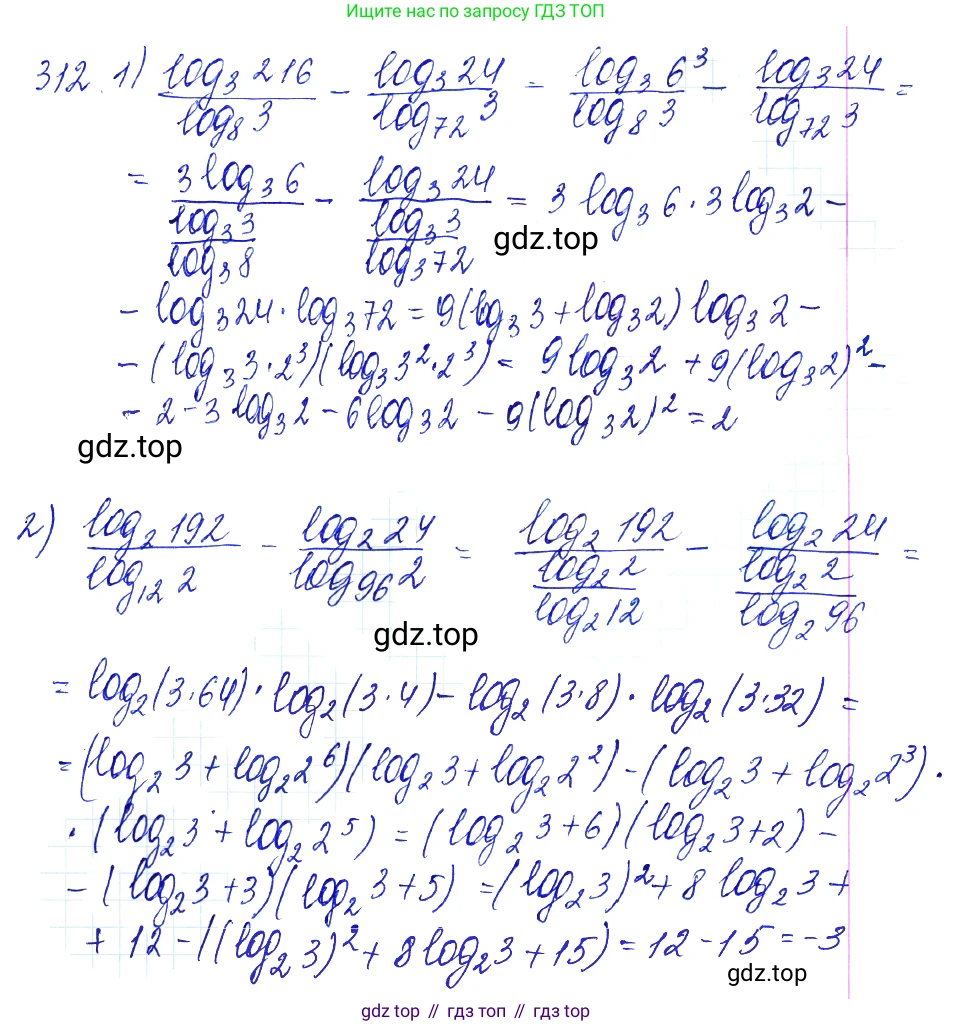 Ищите нас по запросу ГДЗ ТОП
312. 1) log₃216/log₈3 − log₃24/log₇₂3 = log₃6³/log₈3 − log₃24/log₇₂3 =
= 3log₃6/(log₃3/log₃8) − log₃24/(log₃3/log₃72) = 3 log₃6 · 3 log₃2 −
gdz.top
− log₃24 · log₃72 = 9(log₃3 + log₃2) log₃2 −
− (log₃3 · 2³)(log₃3² · 2³) = 9 log₃2 + 9(log₃2)² −
− 2 − 3 log₃2 − 6 log₃2 − 9(log₃2)² = 2
gdz.top
2) log₂192/log₁₂2 − log₂24/log₉₆2 = log₂192/(log₂2/log₂12) − log₂24/(log₂2/log₂96) =
gdz.top
= log₂(3·64) · log₂(3·4) − log₂(3·8) · log₂(3·32) =
= (log₂3 + log₂2⁶)(log₂3 + log₂2²) − (log₂3 + log₂2³) ·
· (log₂3 + log₂2⁵) = (log₂3 + 6)(log₂3 + 2) −
− (log₂3 + 3)(log₂3 + 5) = (log₂3)² + 8 log₂3 +
+ 12 − ((log₂3)² + 8 log₂3 + 15) = 12 − 15 = −3
gdz.top
gdz.top // гдз топ // gdz.top